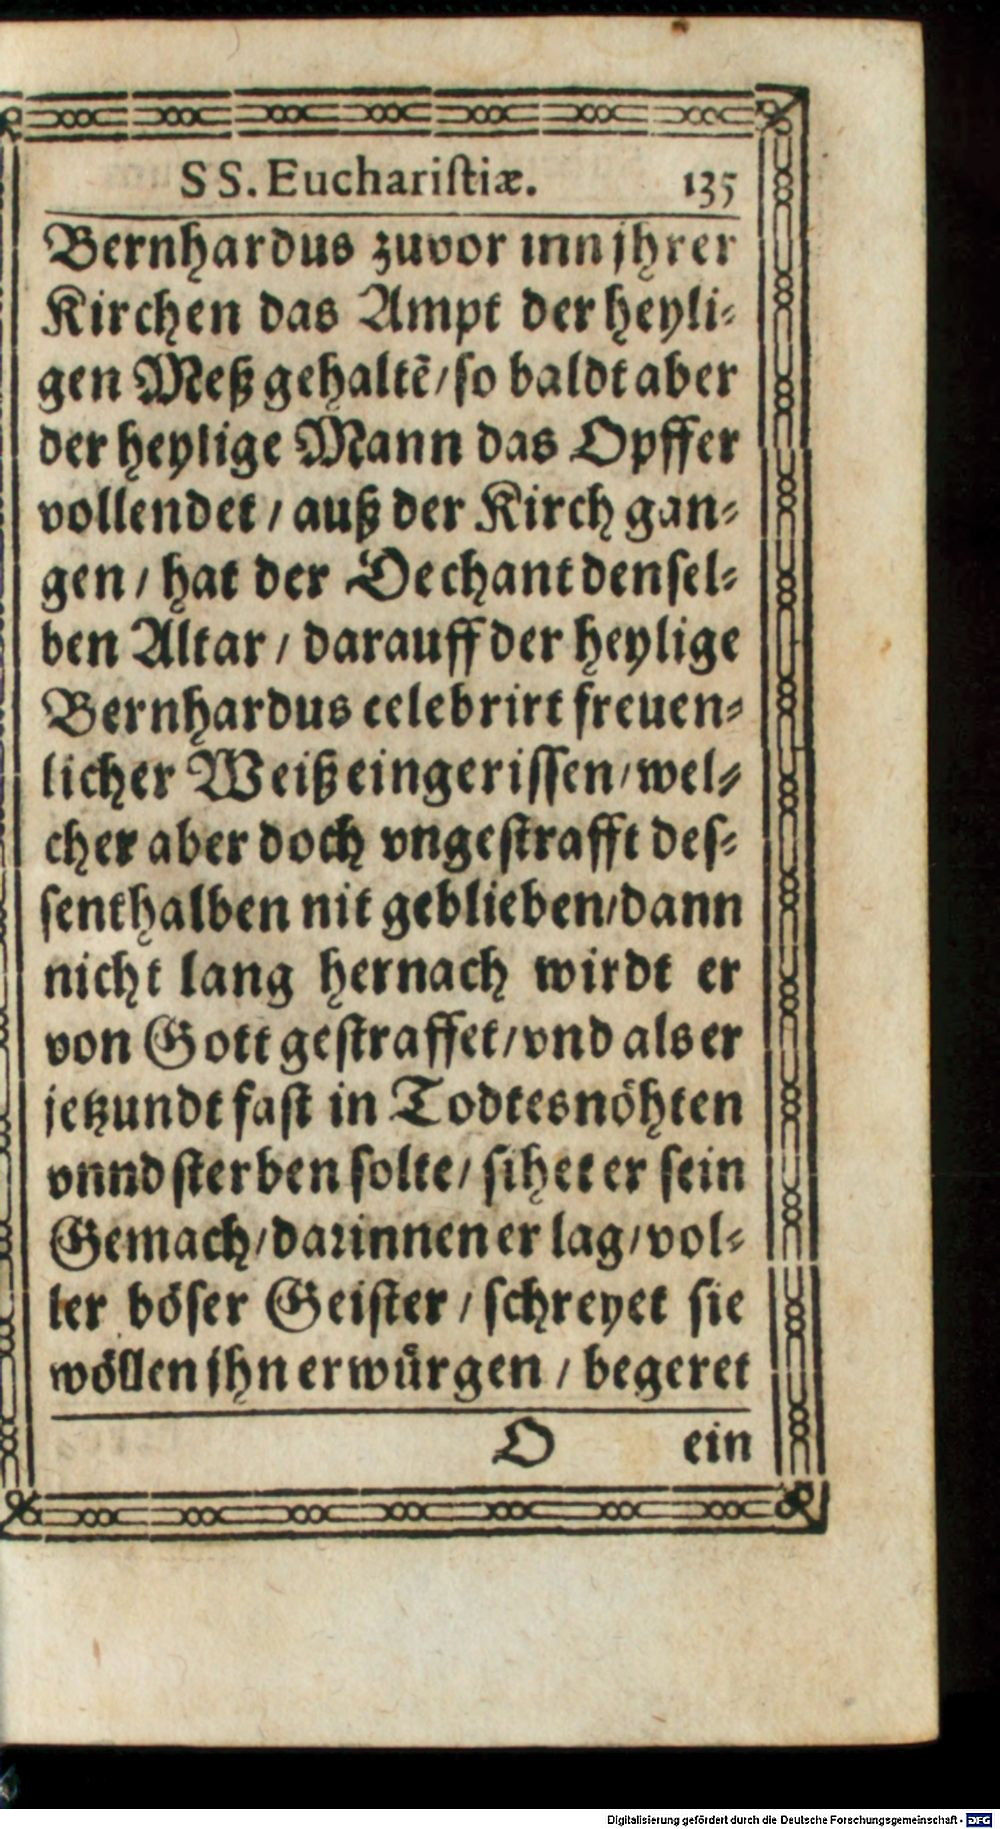 SS. Euchariſtiæ. 135
Bernhardus zuvor inn jhrer
Kirchen das Ampt der heyli-
gen Meß gehaltẽ/ ſo baldt aber
der heylige Mann das Opffer
vollendet / auß der Kirch gan-
gen / hat der Dechant denſel-
ben Altar / darauff der heylige
Bernhardus celebrirt freuen-
licher Weiß eingeriſſen / wel-
cher aber doch vngeſtrafft deſ-
ſenthalben nit geblieben / dann
nicht lang hernach wirdt er
von Gott geſtraffet / vnd als er
jetzundt faſt in Todtesnöhten
vnnd ſterben ſolte / ſihet er ſein
Gemach / darinnen er lag / vol-
ler böſer Geiſter / ſchreyet ſie
wöllen jhn erwürgen / begeret
O ein
Digitalisierung gefördert durch die Deutsche Forschungsgemeinschaft - DFG